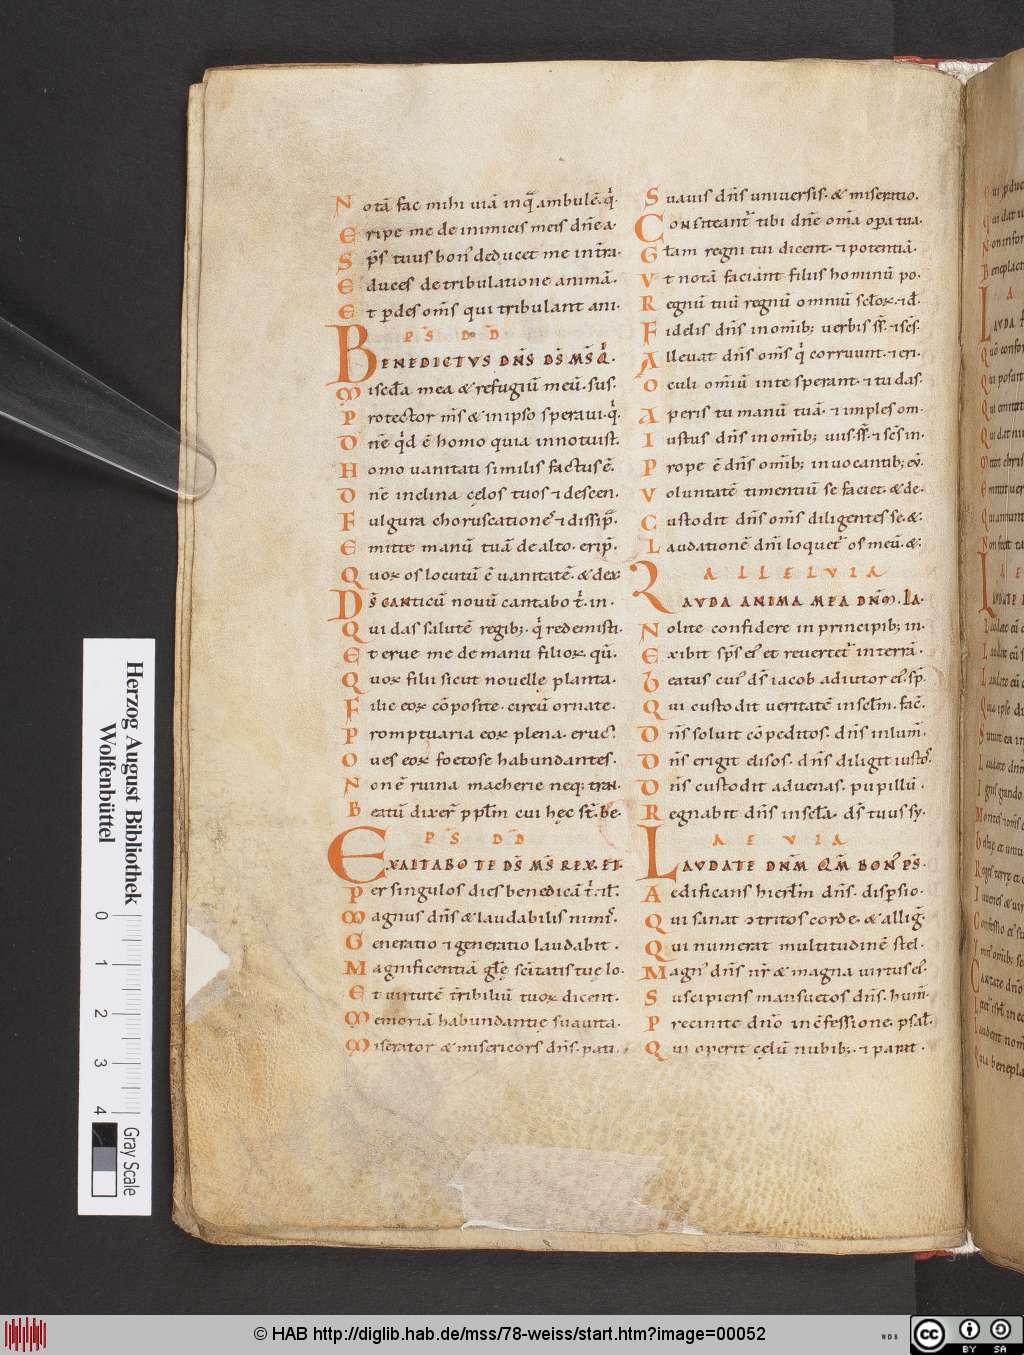 Notā fac mihi uiā in q̄ ambulē. q̇
Eripe me de inimicis meis dn̄e a.
Sp̄s tuus bon᾽ deducet me in tr̄ra.
Educes de tribulatione animā.
Et ꝑdes om̄s qui tribulant ani.
PS̄ DD̄
BENEDICTVS DN̄S DS̄ MS̄ Q̇.
Misc̄da mea & refugiū meū. sus.
Protector m̄s & in ipso speraui. q̇.
Dn̄e q̇d ē homo quia innotuist.
Homo uanitati similis factus ē.
Dn̄e inclina cęlos tuos ⁊ descen.
Fulgura choruscatione᾽ ⁊ dissip̄.
Emitte manū tuā de alto. erip̄.
Quoꝝ os locutū ē uanitatē. & dex
DS̄ CANticū nouū cantabo t̄. in.
Qui das salutē regib;. q̇ redemisti.
Et erue me de manu filioꝝ. qū.
Quoꝝ filii sicut nouellę planta.
Filie eoꝝ cōposite. circū ornate.
Promptuaria eoꝝ plena. eruc᾽.
Oues eoꝝ foetose habundantes.
Non ē ruina macherie neq; tran.
Beatū dixer̄ pp̄lm cui hęc st̄. be.
PS̄ DD̄
EXALTABO TE DS̄ MS̄ REX. ET.
Per singulos dies benedicā t̄. ⁊l̄.
Magnus dn̄s & laudabilis nimr̄.
Generatio ⁊ generatio laudabit.
Magnificentiā gl̄ę sc̄itatis tuę lo.
Et uirtutē tr̄ibiliū tuoꝝ dicent.
Memoriā habundantię suauita.
Miserator & misericors dn̄s. pati.
Suauis dn̄s uniuersis. & miseratio.
CONfiteant᾽ tibi dn̄e om̄a oꝑa tua.
Gl̄am regni tui dicent. ⁊ potentiā.
Vt notā faciant filiis hominū po.
Regnū tuū regnū omniū sc̄loꝝ. ⁊ d̄.
Fidelis dn̄s in om̄ib; uerbis ss̄. ⁊ sc̄s.
Alleuat dn̄s om̄s q̇ corruunt. ⁊ eri.
Oculi om̄iū in te sperant. ⁊ tu das.
Aperis tu manū tuā. ⁊ imples om.
Iustus dn̄s in om̄ib; uiis. ss̄. ⁊ sc̄s in.
Prope ē dn̄s om̄ib; inuocantib; eū.
Voluntatē timentiū se faciet. & de.
Custodit dn̄s om̄s diligentes se. &.
Laudationē dn̄i loquet᾽ os meū. &.
ALLELVIA
LAVDA ANIMA MEA DN̄M. LA.
Nolite confidere in principib; in.
Exibit sp̄s ei᾽ et reuertet᾽ in terrā.
Beatus cui᾽ ds̄ iacob adiutor ei᾽. sp̄.
Qui custodit ueritatē in sc̄lm. fac̄.
Dn̄s soluit cōpeditos. dn̄s inlum̄.
Dn̄s erigit elisos. dn̄s diligit iustos̄.
Dn̄s custodit aduenas. pupillū.
Regnabit dn̄s in sc̄la. ds̄ tuus sy.
AEVIA
LAVDATE DN̄M QM̄ BON᾽ PS̄.
Aedificans hierl̄m dn̄s. disꝑsio.
Qui sanat ↄtritos corde. & alliḡ̣.
Qui numerat multitudinē stel.
Magn᾽ dn̄s nr̄ & magna uirtus ei᾽.
Suscipiens mansuetos dn̄s. hum̄.
Precinite dn̄o in cōfessione. psal̄.
Qui operit cęlū nubib;. ⁊ parat.
Herzog August Bibliothek
Wolfenbüttel
0 1 2 3 4
Gray Scale
© HAB http://diglib.hab.de/mss/78-weiss/start.htm?image=00052
WDB
cc
BY SA